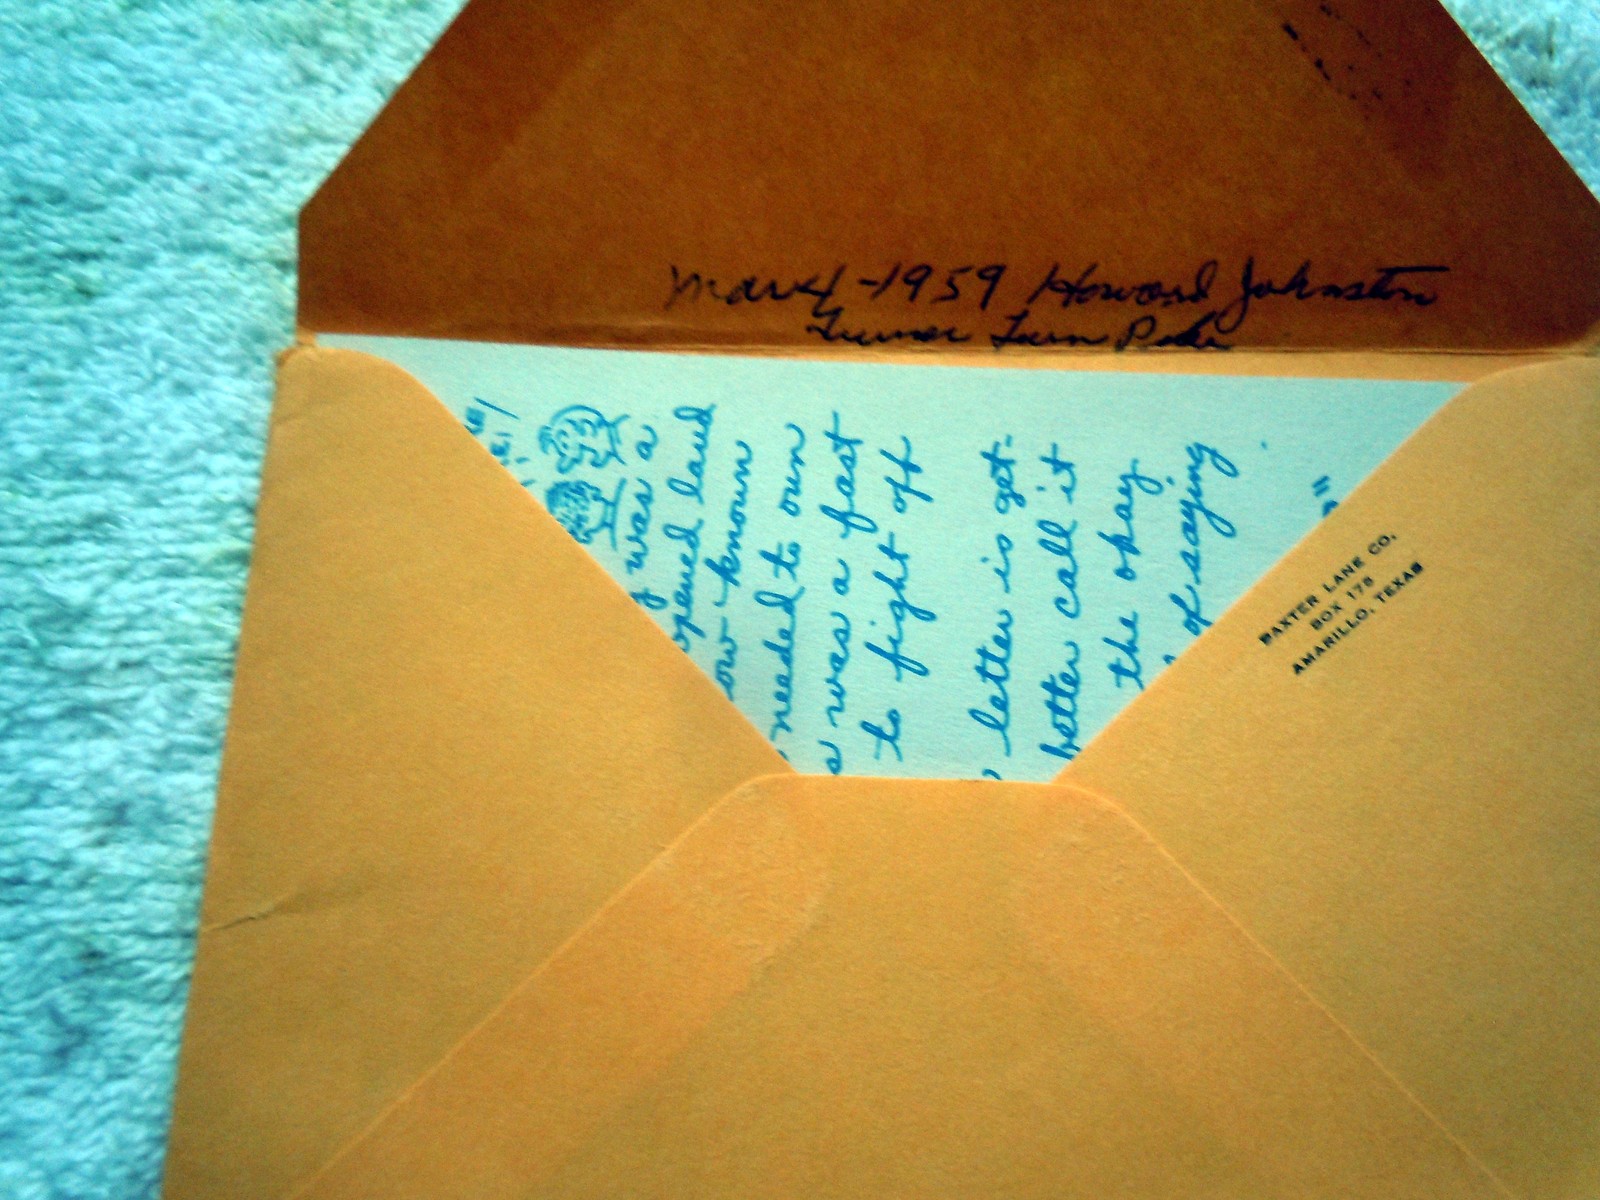 Mar 4 - 1959 Howard Johnston
Turner Turn Pike
was a
opened land
now known
needed to own
a was a fast
to fight off
letter is get-
better call it
the okay
of saying
BAXTER LANE CO.
BOX 175
AMARILLO, TEXAS